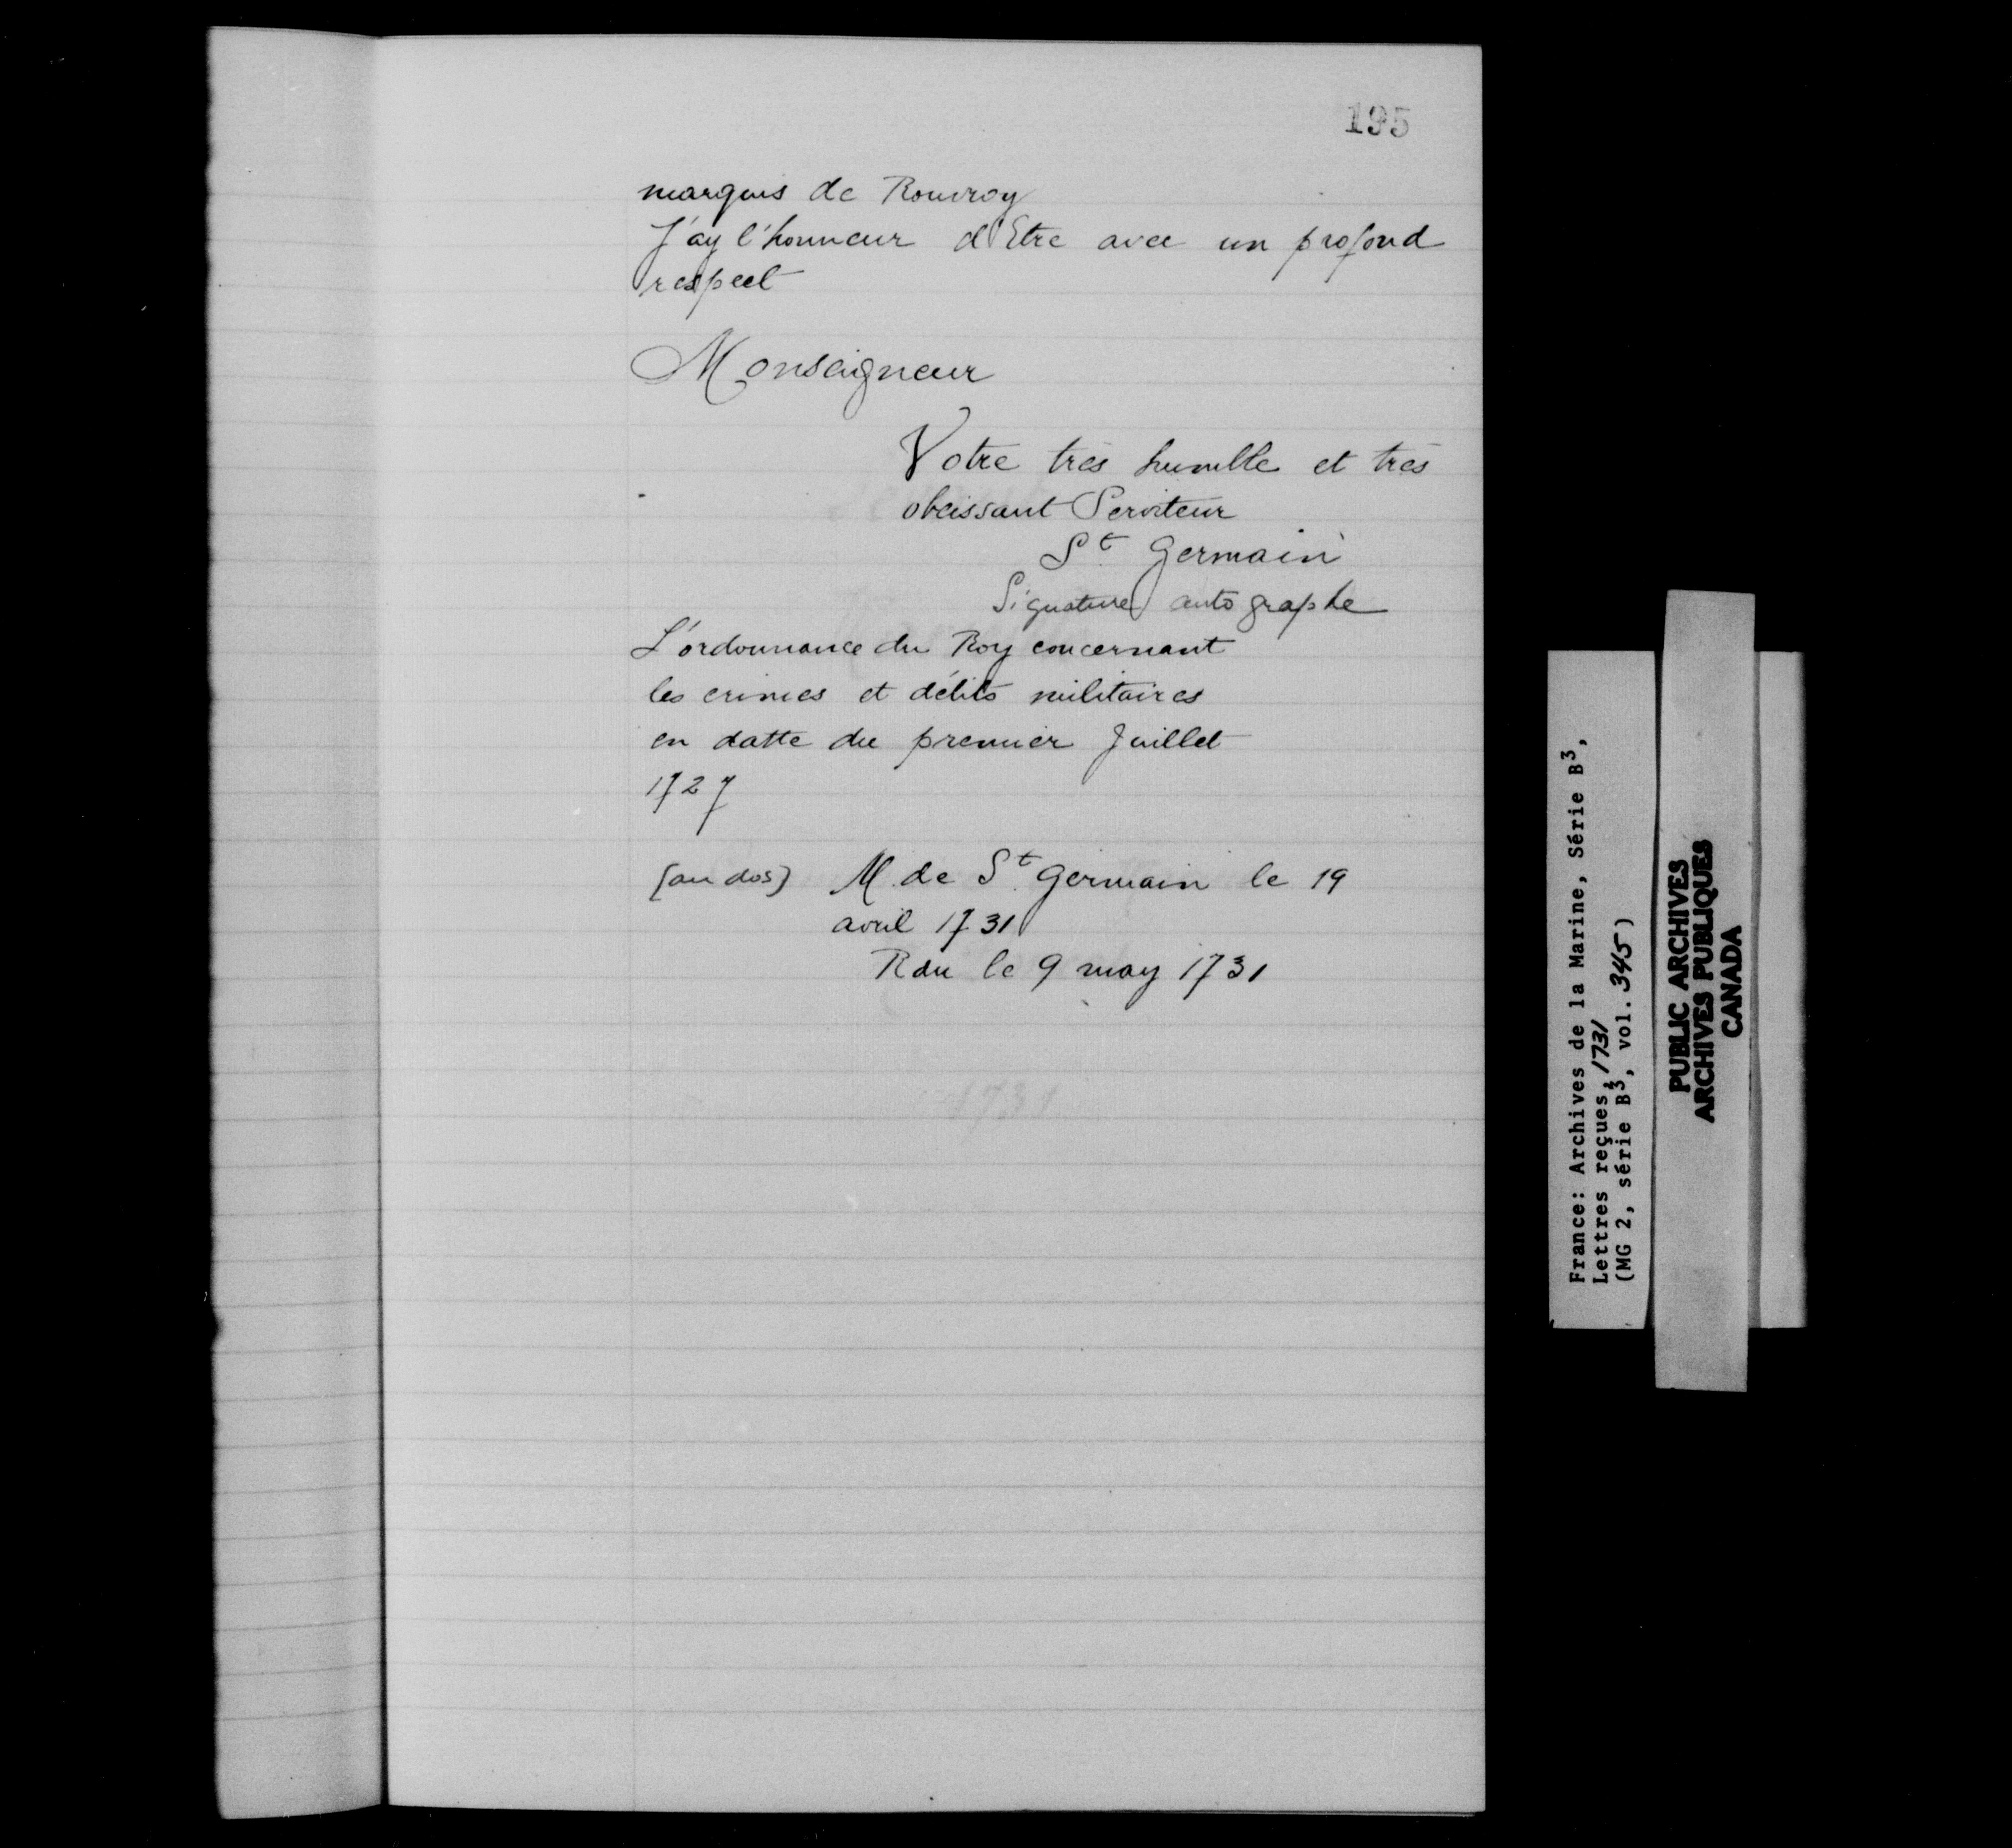 195
marquis de Rouvroy
J'ay l'honneur d'Etre avec un profond
respect
Monseigneur
Votre très humble et très
obeissant Serviteur
St Germain
Signature autographe
L'ordonnance du Roy concernant
les crimes et délits militaires
en datte du premier Juillet
1727
(au dos) M. de St Germain le 19
avril 1731
Rdu le 9 may 1731
1731
France: Archives de la Marine, Série B3,
Lettres reçues, 1731
(MG 2, série B3, vol. 345)
PUBLIC ARCHIVES
ARCHIVES PUBLIQUES
CANADA